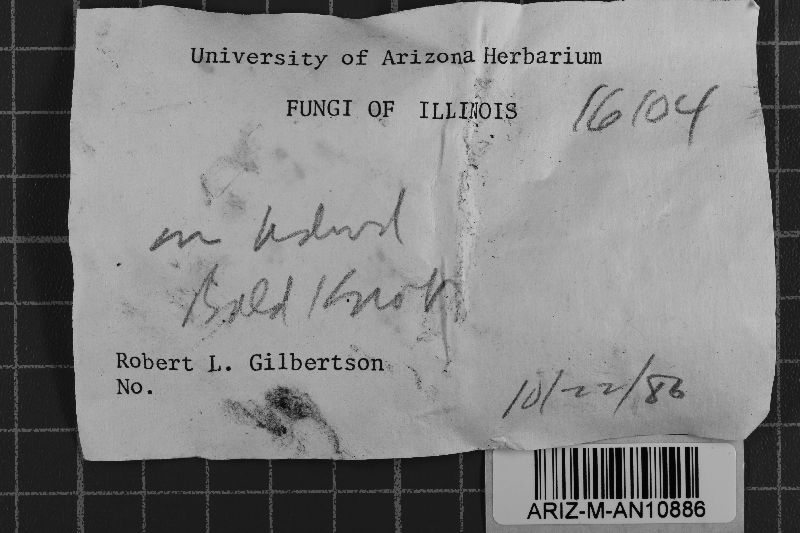 University of Arizona Herbarium
FUNGI OF ILLINOIS
16104
on hdwd
Bald Knob
Robert L. Gilbertson
No.
10/22/86
ARIZ-M-AN10886